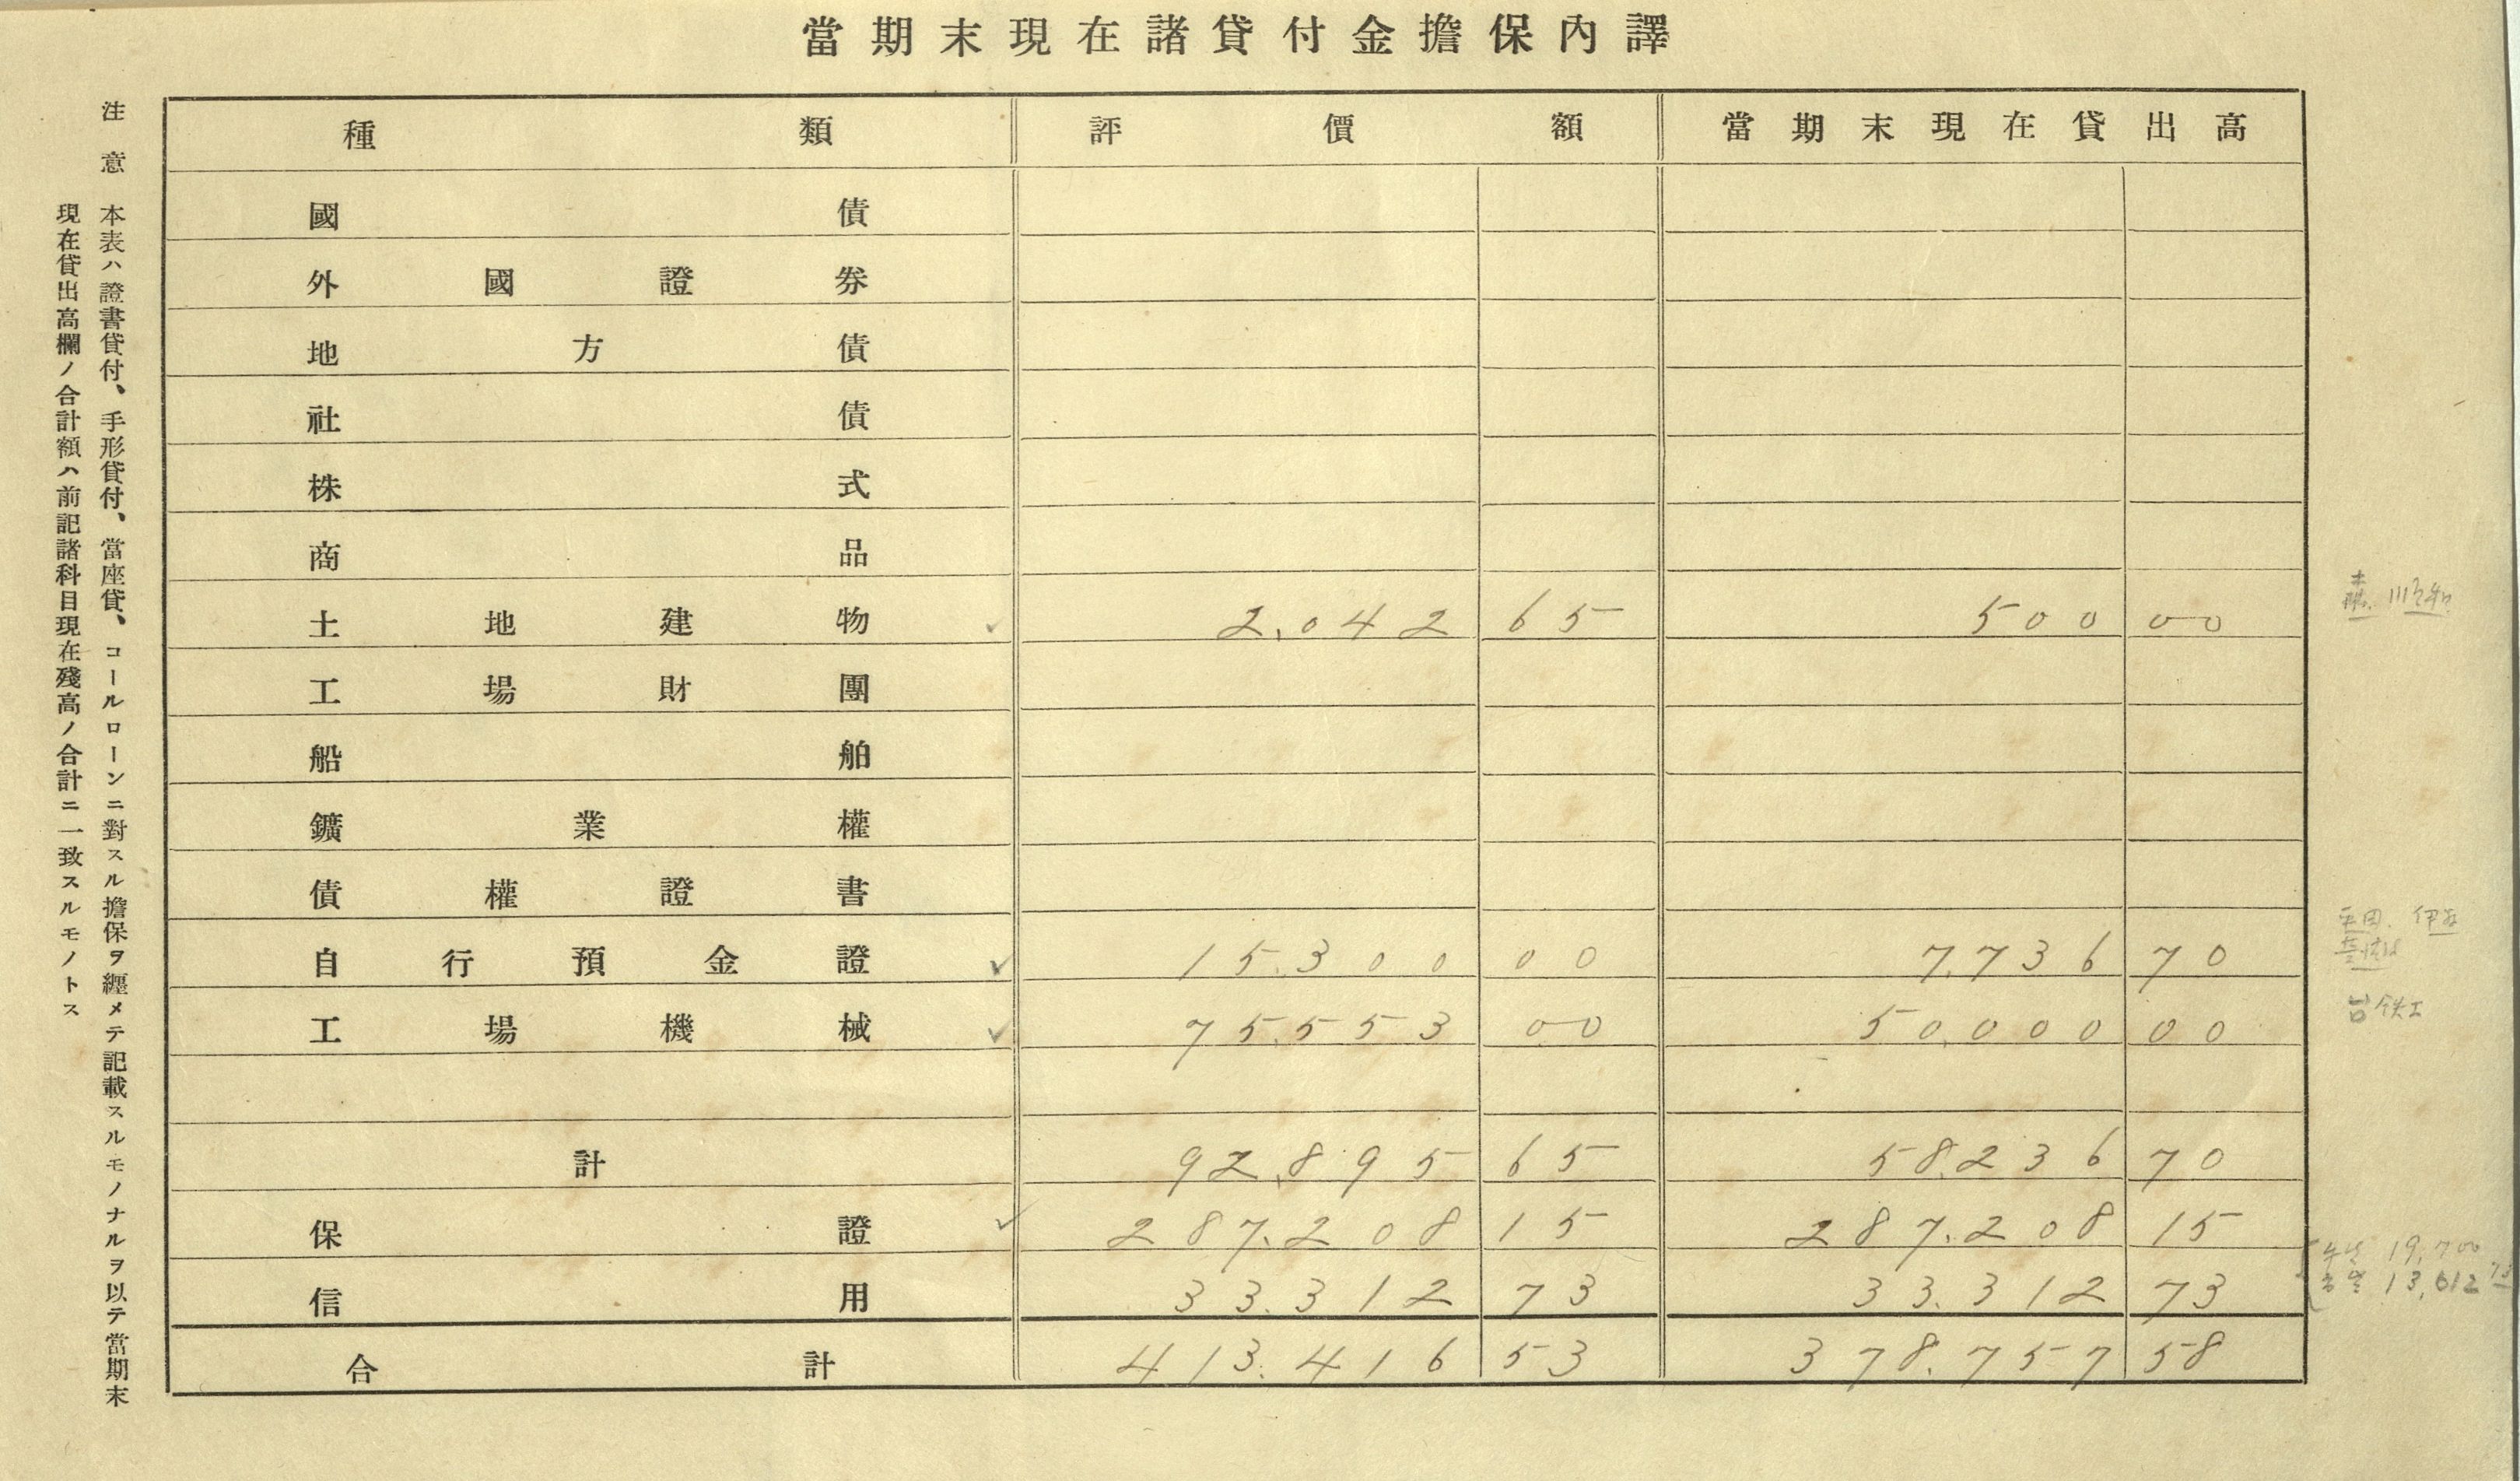 當期末現在諸貸付金擔保內譯
種類 評價額 當期末現在貸出高
國債
外國證券
地方債
社債
株式
商品
土地建物 ✓ 2,042 65 500 00
工場財團
船舶
鑛業權
債權證書
自行預金證 ✓ 15,300 00 7,736 70
工場機械 ✓ 75,553 00 50,000 00
計 92,895 65 58,236 70
保證 ✓ 287,208 15 287,208 15
信用 33,312 73 33,312 73
合計 413,416 53 378,757 58
注意 本表ハ證書貸付、手形貸付、當座貸、コールローンニ對スル擔保ヲ纒メテ記載スルモノナルヲ以テ當期末
現在貸出高欄ノ合計額ハ前記諸科目現在殘高ノ合計ニ一致スルモノトス
台鉄工
19,700
13,612 73